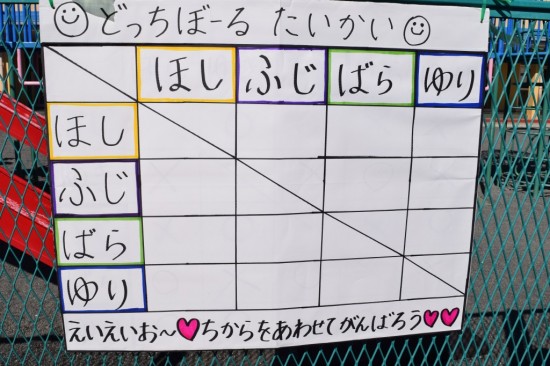 どっちぼーる たいかい
ほし ふじ ばら ゆり
ほし
ふじ
ばら
ゆり
えいえいお〜♥ちからをあわせてがんばろう♥♥